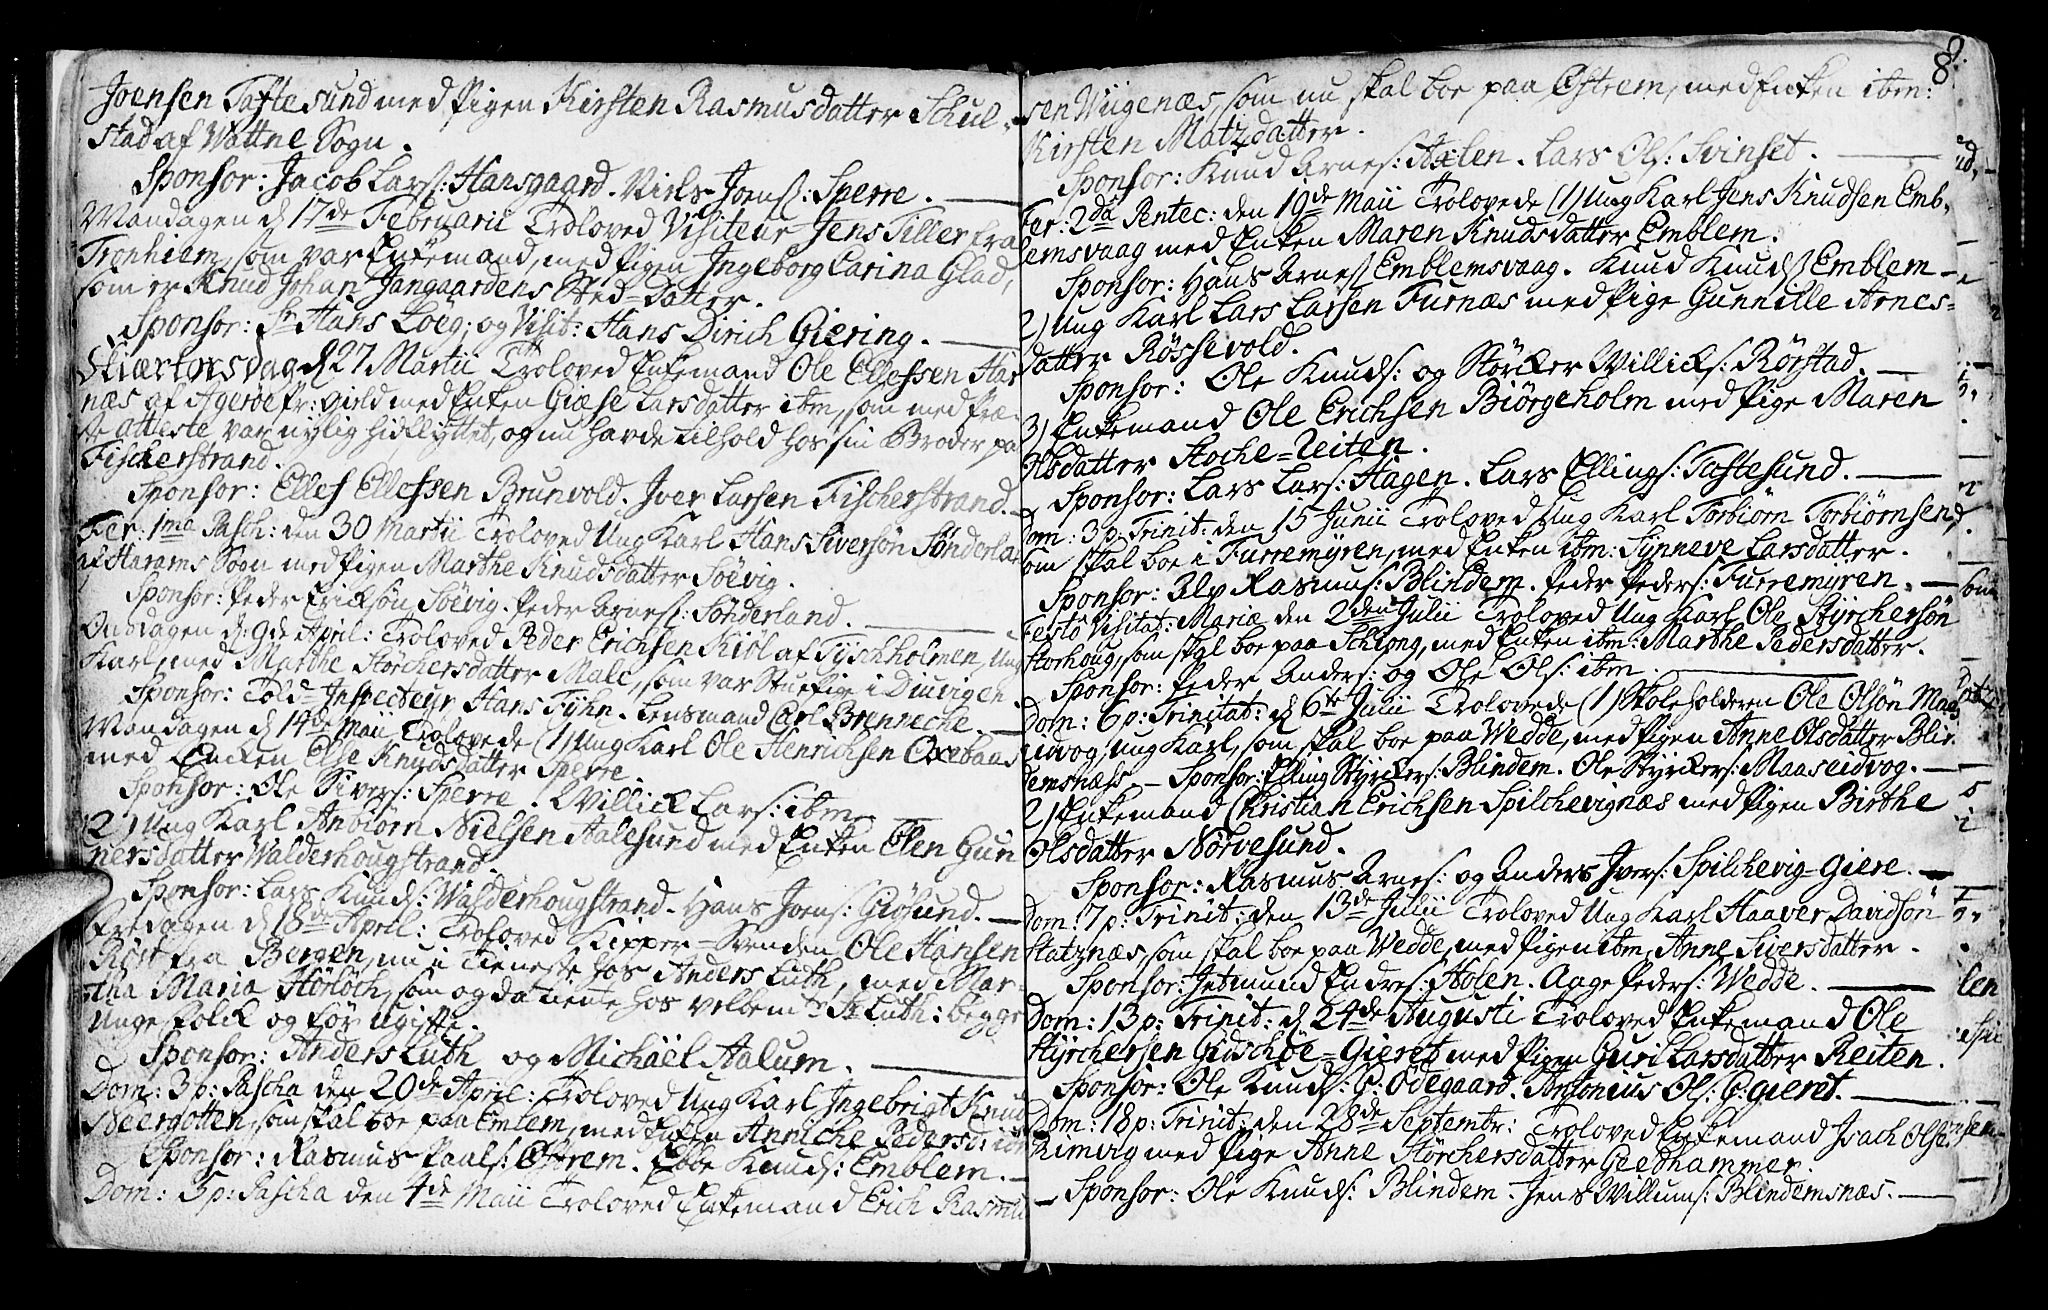 Joensen Taftesund med Pigen Kirsten Rasmusdatter Schul-
stad af Wattne Sogn.
Sponsor: Jacob Lars: Hansgaard. Niels Joens: Sperre.
Mandagen d 17de Februarii Troloved Visiteur Jens Tiller fra
Tronhiem, som var Enkemand, med Pigen Ingeborg Carina Glad,
som er Knud Johan Jangaardens Sted-Datter.
Sponsor: Sr Hans Loeg, og Visit: Hans Dirich Giering.
Skiærtorsdag d 27 Martii Troloved Enkemand Ole Ellefsen Har
næs af Agerøe Pr: gield med Enken Giæse Larsdatter ibm, som med Præ-
ste atteste var nylig hidflyttet, og nu havde tilhold hos sin Broder paa
Fischerstrand.
Sponsor: Ellef Ellefsen Brunvold. Iver Larsen Fischerstrand.
Fer: 1ma Pasch: den 30 Martii Troloved Ung Karl Hans Siversøn Sønderland
af Harams Sogn med Pigen Marthe Knudsdatter Søevig.
Sponsor: Peder Erichsøn Søevig. Peder Arnes: Sønderland.
Onsdagen d: 9de April: Troloved Peder Erichsen Kiøl af Tyschholmen, Ung
Karl, med Marthe Størchersdatter Male, som var Stuepige i Diuvigen.
Sponsor: Told-Inspecteur Hans Tyhn. Lensmand Carl Brenneche.
Mandagen d 14de Maii Trolovede (1) Ung Karl Ole Henrichsen Oxebaas
med Encken Else Knudsdatter Sperre.
Sponsor: Ole Sivers: Sperre. Willick Lars: ibm.
2) Ung Karl Anbiørn Nielsen Aalesund med Enken Elen Gun
nersdatter Walderhougstrand.
Sponsor: Lars Knuds: Walderhougstrand. Hans Joens: Giøsund.
Fredagen d 18de April: Troloved Kipper-Svenden Ole Hansen
Røst fra Bergen, nu i Tieneste hos Anders Luth, med Mar-
tha Maria Hørløch, som og da tiente hos velbemte Sr Luth: begge
Unge folck og før ugifte.
Sponsor: Anders Luth og Michäel Aalum.
Dom: 3 p: Pascha den 20de April: Troloved Ung Karl Ingebrigt Knud
Neergotten, som skal boe paa Emlem, med Enken Anniche Pedersd: ibm
Sponsor: Rasmus Paals: Østrem. Ebbe Knuds: Emblem.
Dom: 5 p: Pascha den 4de Maii Troloved Enkemand Erich Rasmu
8.
sen Wiigenæs, som nu skal boe paa Østrem, med Enken ibm:
Kirsten Matzdatter.
Sponsor: Knud Arnes: Axlen. Lars Ols: Svinset.
Fer: 2da Pentec: den 19de Maii Trolovede (1) Ung Karl Jens Knudsen Emb-
lemsvaag med Enken Maren Knudsdatter Emblem.
Sponsor: Hans Arnes: Emblemsvaag. Knud Knuds: Emblem
2) Ung Karl Lars Larsen Furnæs med Pige Gunnille Arnes-
datter Røssevold.
Sponsor: Ole Knuds: og Størcker Willicks: Rørstad.
3) Enkemand Ole Erichsen Biørgeholm med Pige Maren
Olsdatter Stoche-Reiten.
Sponsor: Lars Lars: Hagen. Lars Ellings: Taftesund.
Dom: 3 p: Trinit: den 15 Junii Troloved Ung Karl Torbiørn Torbiørnsen,
som skal boe i Furremyren, med Enken ibm: Synneve Larsdatter.
Sponsor: Alv Rasmus: Blindem. Peder Peders: Furremyren.
Festo Visitat: Mariæ den 2den Julii Troloved Ung Karl Ole Styrchersøn
Storhoug, som skal boe paa Schiong, med Enken ibm: Marthe Pedersdatter.
Sponsor: Peder Anders: og Ole Ols: ibm.
Dom: 6 p: Trinitat: d 6te Julii Trolovede (1) Skoleholderen Ole Olsøn Maas
eidvog, Ung Karl, som skal boe paa Wedde, med Pigen Anne Olsdatter Blin
demsnæs. - Sponsor: Elling Styrckers: Blindem. Ole Styrckers: Maaseidvog.
2) Enkemand Christian Erichsen Spilchevignæs med Pigen Birthe
Olsdatter Nørvesund.
Sponsor: Rasmus Arnes: og Anders Ivers: Spilchevig-Giere.
Dom: 7 p: Trinit: den 13de Julii Troloved Ung Karl Haaver Davidsøn
Statznæs, som skal boe paa Wedde, med Pigen ibm Anne Siversdatter.
Sponsor: Jetmund Endres: Holen. Aage Peders: Wedde.
Dom: 13 p: Trinit: d 24de Augusti Troloved Enkemand Ole
Styrchersen Gidschoe-Gieret med Pigen Guri Larsdatter Reiten.
Sponsor: Ole Knuds: G: Ødegaard. Antonius Ols: G: gieret.
Dom: 18 p: Trinit: den 28de Septembr: Troloved Enkemand Isach Olse
Rimvig med Pige Anne Størchersdatter Geedhammer.
Sponsor: Ole Knuds: Blindem. Jens Willums: Blindemsnæs.